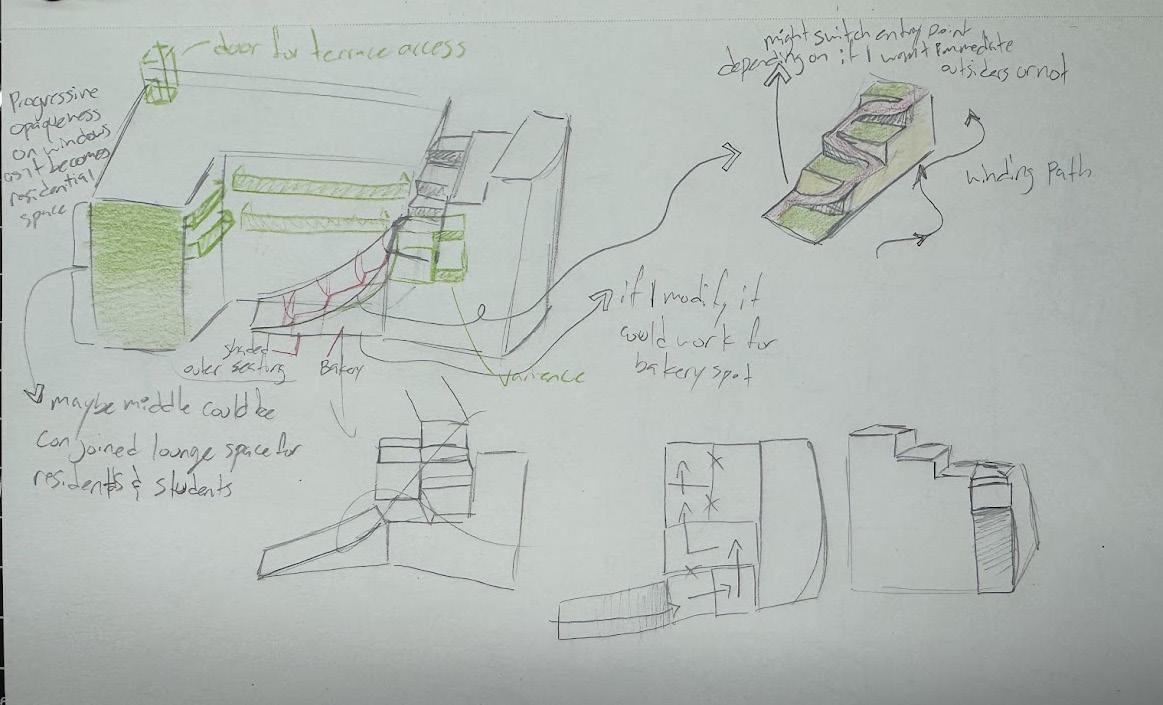 door for terrace access
Progressive
opaqueness
on windows
as it becomes
residential
space
might switch entry point
depending on if I want immediate
outsiders or not
winding Path
if I modify, it
could work for
bakery spot
shaded
outer seating
Bakery
varience
maybe middle could be
conjoined lounge space for
residents & students